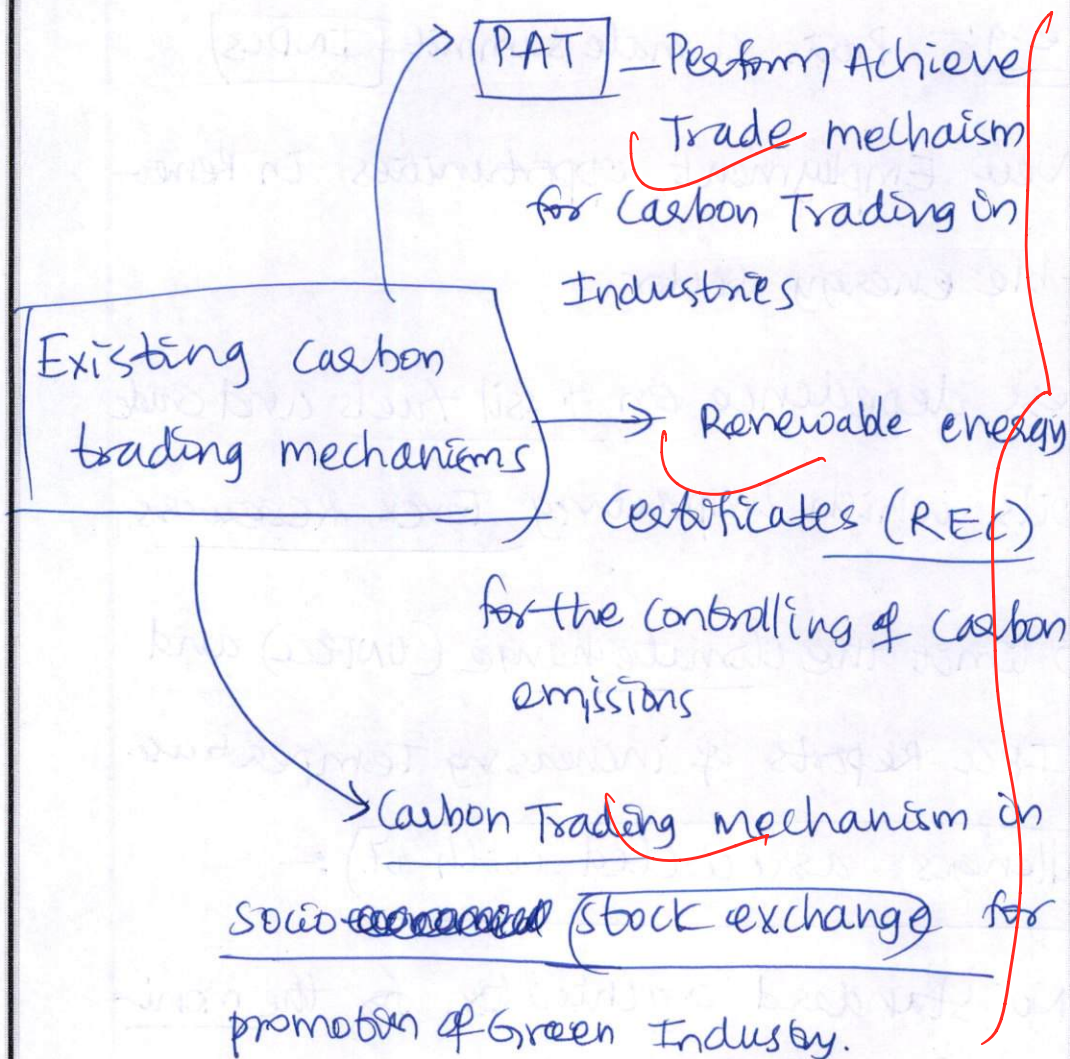 PAT - Perform Achieve
Trade mechaism
for Carbon Trading in
Industries
Existing carbon
trading mechanisms
Renewable energy
Certificates (REC)
for the controlling of carbon
emissions
Carbon Trading mechanism in
socio stock exchange for
promotion of Green Industry.